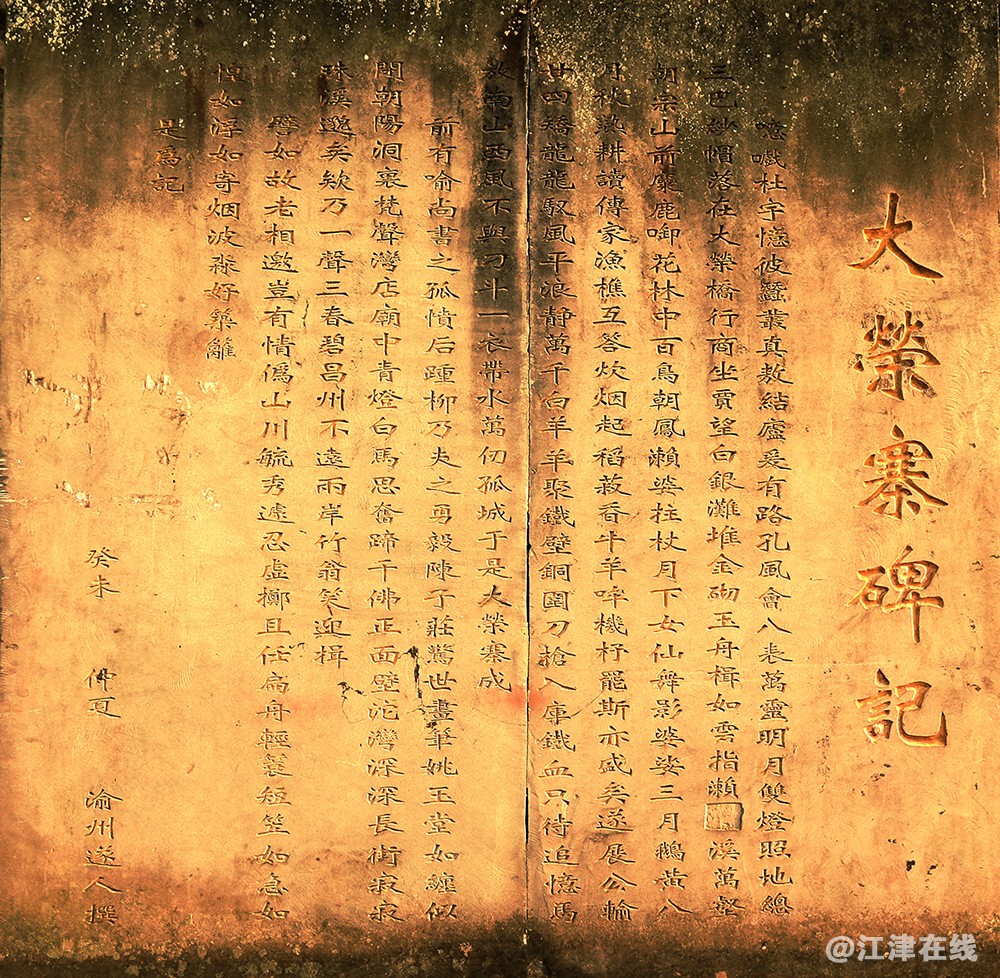 大榮寨碑記
噫嚱杜宇憶彼蠶叢真敖結廬爰有路孔風會八表萬靈明月雙燈照地總
三巴紗帽落在大榮橋行商坐賈望白銀灘堆金砌玉舟楫如雲指瀨溪萬壑
朝宗山前麋鹿啣花林中百鳥朝鳳瀨婆拄杖月下女仙舞影婆娑三月鵝黄八
月秋熟耕讀傳家漁樵互答炊烟起稻菽香牛羊哞機杼罷斯亦盛矣遂展公輸
廿四矯龍龍馭風平浪静萬千白羊羊聚鐵壁銅圍刀槍入庫鐵血只待追憶馬
放南山西風不與刁斗一衣帶水萬仞孤城于是大榮寨成
前有喻尚書之孤憤后踵柳乃夫之勇毅陳子莊驚世畫筆姚玉堂如纏似
閒朝陽洞裏梵聲灣店廟中青燈白馬思奮蹄千佛正面壁沱灣深深長街寂寂
珠溪邈矣欸乃一聲三春碧昌州不遠兩岸竹翁笑迎楫
譬如故老相邀豈有情僞山川毓秀遽忍虛擲且任扁舟輕蓑短笠如急如
惶如浮如寄烟波淼好築籬
是爲記
癸未 仲夏 渝州遂人撰
@江津在线